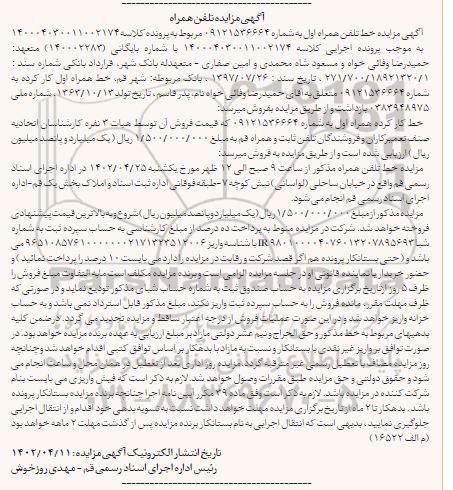 آگهی مزایده تلفن همراه
آگهی مزایده خط تلفن همراه اول به شماره ۰۹۱۲۱۵۳۶۶۶۴ مربوط به پرونده کلاسه ۱۴۰۰۰۴۰۳۰۰۱۱۰۰۲۱۷۴
به موجب پرونده اجرایی کلاسه ۱۴۰۰۰۴۰۳۰۰۱۱۰۰۲۱۷۴ با شماره بایگانی (۱۴۰۰۰۲۲۸۳) متعهد:
حمیدرضا وفائی خواه و مسعود شاه محمدی و امین صفاری - متعهدله بانک شهر، قرارداد بانکی شماره سند :
۲۷۱/۷۰۰/۱۸۹۲۱۳۲۰/۱ ، تاریخ سند : ۱۳۹۷/۰۷/۲۶ ، بانک مربوطه: شهر قم، خط همراه اول کار کرده به
شماره ۰۹۱۲۱۵۳۶۶۶۴ متعلق به آقای حمیدرضا وفائی خواه نام پدر قاسم، تاریخ تولد ۱۳۶۳/۱۰/۱۳، شماره ملی
۰۳۸۳۹۴۸۹۷۵ بازداشت و از طریق مزایده بفروش میرسد:
خط کار کرده همراه اول به شماره ۰۹۱۲۱۵۳۶۶۶۴ که قیمت فروش آن توسط هیات ۳ نفره کارشناسان اتحادیه
صنف تعمیرکاران و فروشندگان تلفن ثابت و همراه قم به مبلغ ۱/۵۰۰/۰۰۰/۰۰۰ ریال (یک میلیارد و پانصد میلیون
ریال) ارزیابی شده است و از طریق مزایده به فروش میرسد:
مزایده خط تلفن همراه مذکور از ساعت ۹ صبح الی ۱۲ ظهر مورخ یکشنبه ۱۴۰۲/۰۴/۲۵ در اداره اجرای اسناد
رسمی قم واقع در خیابان ساحلی (لواسانی) نبش کوچه ۷-طبقه فوقانی اداره ثبت اسناد و املاک بخش یک قم-اداره
اجرای اسناد رسمی قم انجام می شود.
مزایده مذکور از مبلغ ۱/۵۰۰/۰۰۰/۰۰۰ ریال (یک میلیارد و پانصد میلیون ریال) شروع و به بالاترین قیمت پیشنهادی
فروخته خواهد شد. شرکت در مزایده منوط به پرداخت ده درصد از مبلغ کارشناسی به حساب سپرده ثبت به شماره
شبا IR۹۸۰۱۰۰۰۰۴۰۷۶۰۱۳۲۰۷۸۹۵۶۹۳ با شناسه واریز ۹۶۵۱۰۸۵۷۶۱۰۰۰۰۰۰۰۲۱۷۱۳۲۳۵۱۲۰۰۶ می
باشد و (حتی بستانکار پرونده هم اگر قصد شرکت و رقابت در مزایده را دارد می بایست ۱۰ درصد را پرداخت نمائید ) و
حضور خریدار یا نماینده قانونی او در جلسه مزایده الزامی است و برنده مزایده مکلف است مابه التفاوت مبلغ فروش را
ظرف ۵ روز از تاریخ برگزاری مزایده به حساب صندوق ثبت به شماره حساب شبای مذکور تودیع نماید و در صورتی که
ظرف مهلت مقرر، مانده فروش را به حساب سپرده ثبت واریز نکند، مبلغ مذکور قابل استرداد نمی باشد و به حساب
خزانه واریز خواهد شد و در این صورت عملیات فروش از درجه اعتبار ساقط و مزایده تجدید می گردد. در ضمن کلیه
بدهیهای مربوط به خط مذکور و حق الحراج و نیم عشر دولتی مازاد بر مبلغ ارزیابی به عهده برنده مزایده خواهد بود. در
صورت توافق بر واریز غیر نقدی با بستانکار و نسبت به مازاد با بدهکار بر اساس توافق کتبی اقدام خواهد شد و چنانچه
روز مزایده مصادف با تعطیل رسمی غیر مترقبه گردد، مزایده روز اداری بعد از تعطیل در همان محل و ساعت انجام می
شود و حقوق دولتی و حق مزایده طبق مقررات وصول خواهد شد. لازم به ذکر است که فیش واریزی می بایست بنام
شرکت کننده در مزایده باشد. لازم به ذکر است وفق ماده ۳۹ مکرر آیین نامه اجرا چنانچه برنده مزایده بستانکار پرونده
باشد . بدهکار تا ۲ ماه از تاریخ برگزاری مزایده مهلت خواهد داشت نسبت به تسویه بدهی خود اقدام و از انتقال اجرایی
جلوگیری نمایید ، بدیهی است که انتقال اجرایی به نام بستانکار برنده مزایده پس از گذشت مهلت ۲ ماهه خواهد بود
(م الف ۱۶۵۲۲)
تاریخ انتشار الکترونیک آگهی مزایده: ۱۴۰۲/۰۴/۱۱
رئیس اداره اجرای اسناد رسمی قم - مهدی روزخوش